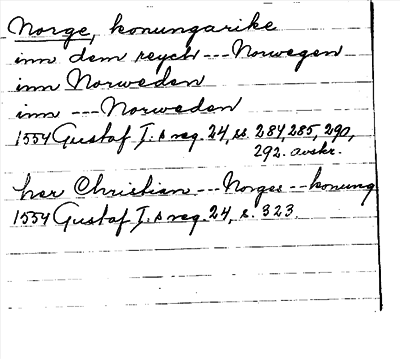 Norge, konungarike
inn dem reych --- Norwegen
inn Norweden
inn --- Norweden
1554 Gustaf I.s reg. 24, s. 284, 285, 290,
292. avskr.
her Christian --- Norges -- konung
1554 Gustaf I.s reg. 24, s. 323.